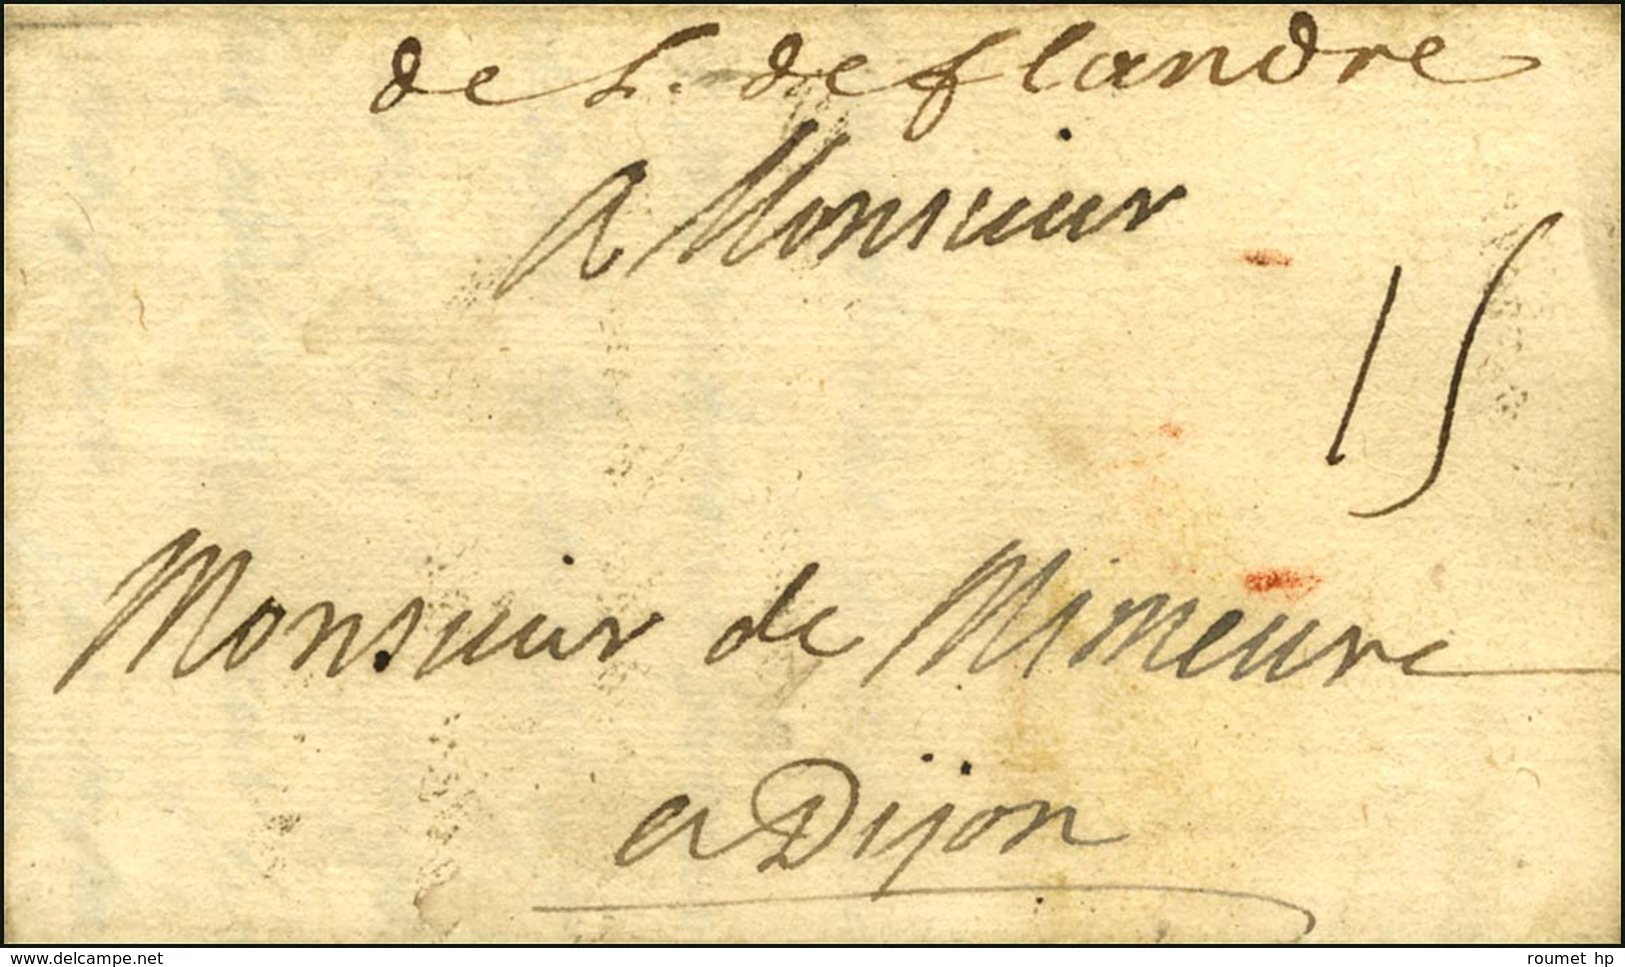 de L. de flandre
A Monsieur
15
Monsieur de Mimeure
a Dijon
www.delcampe.net
roumet hp